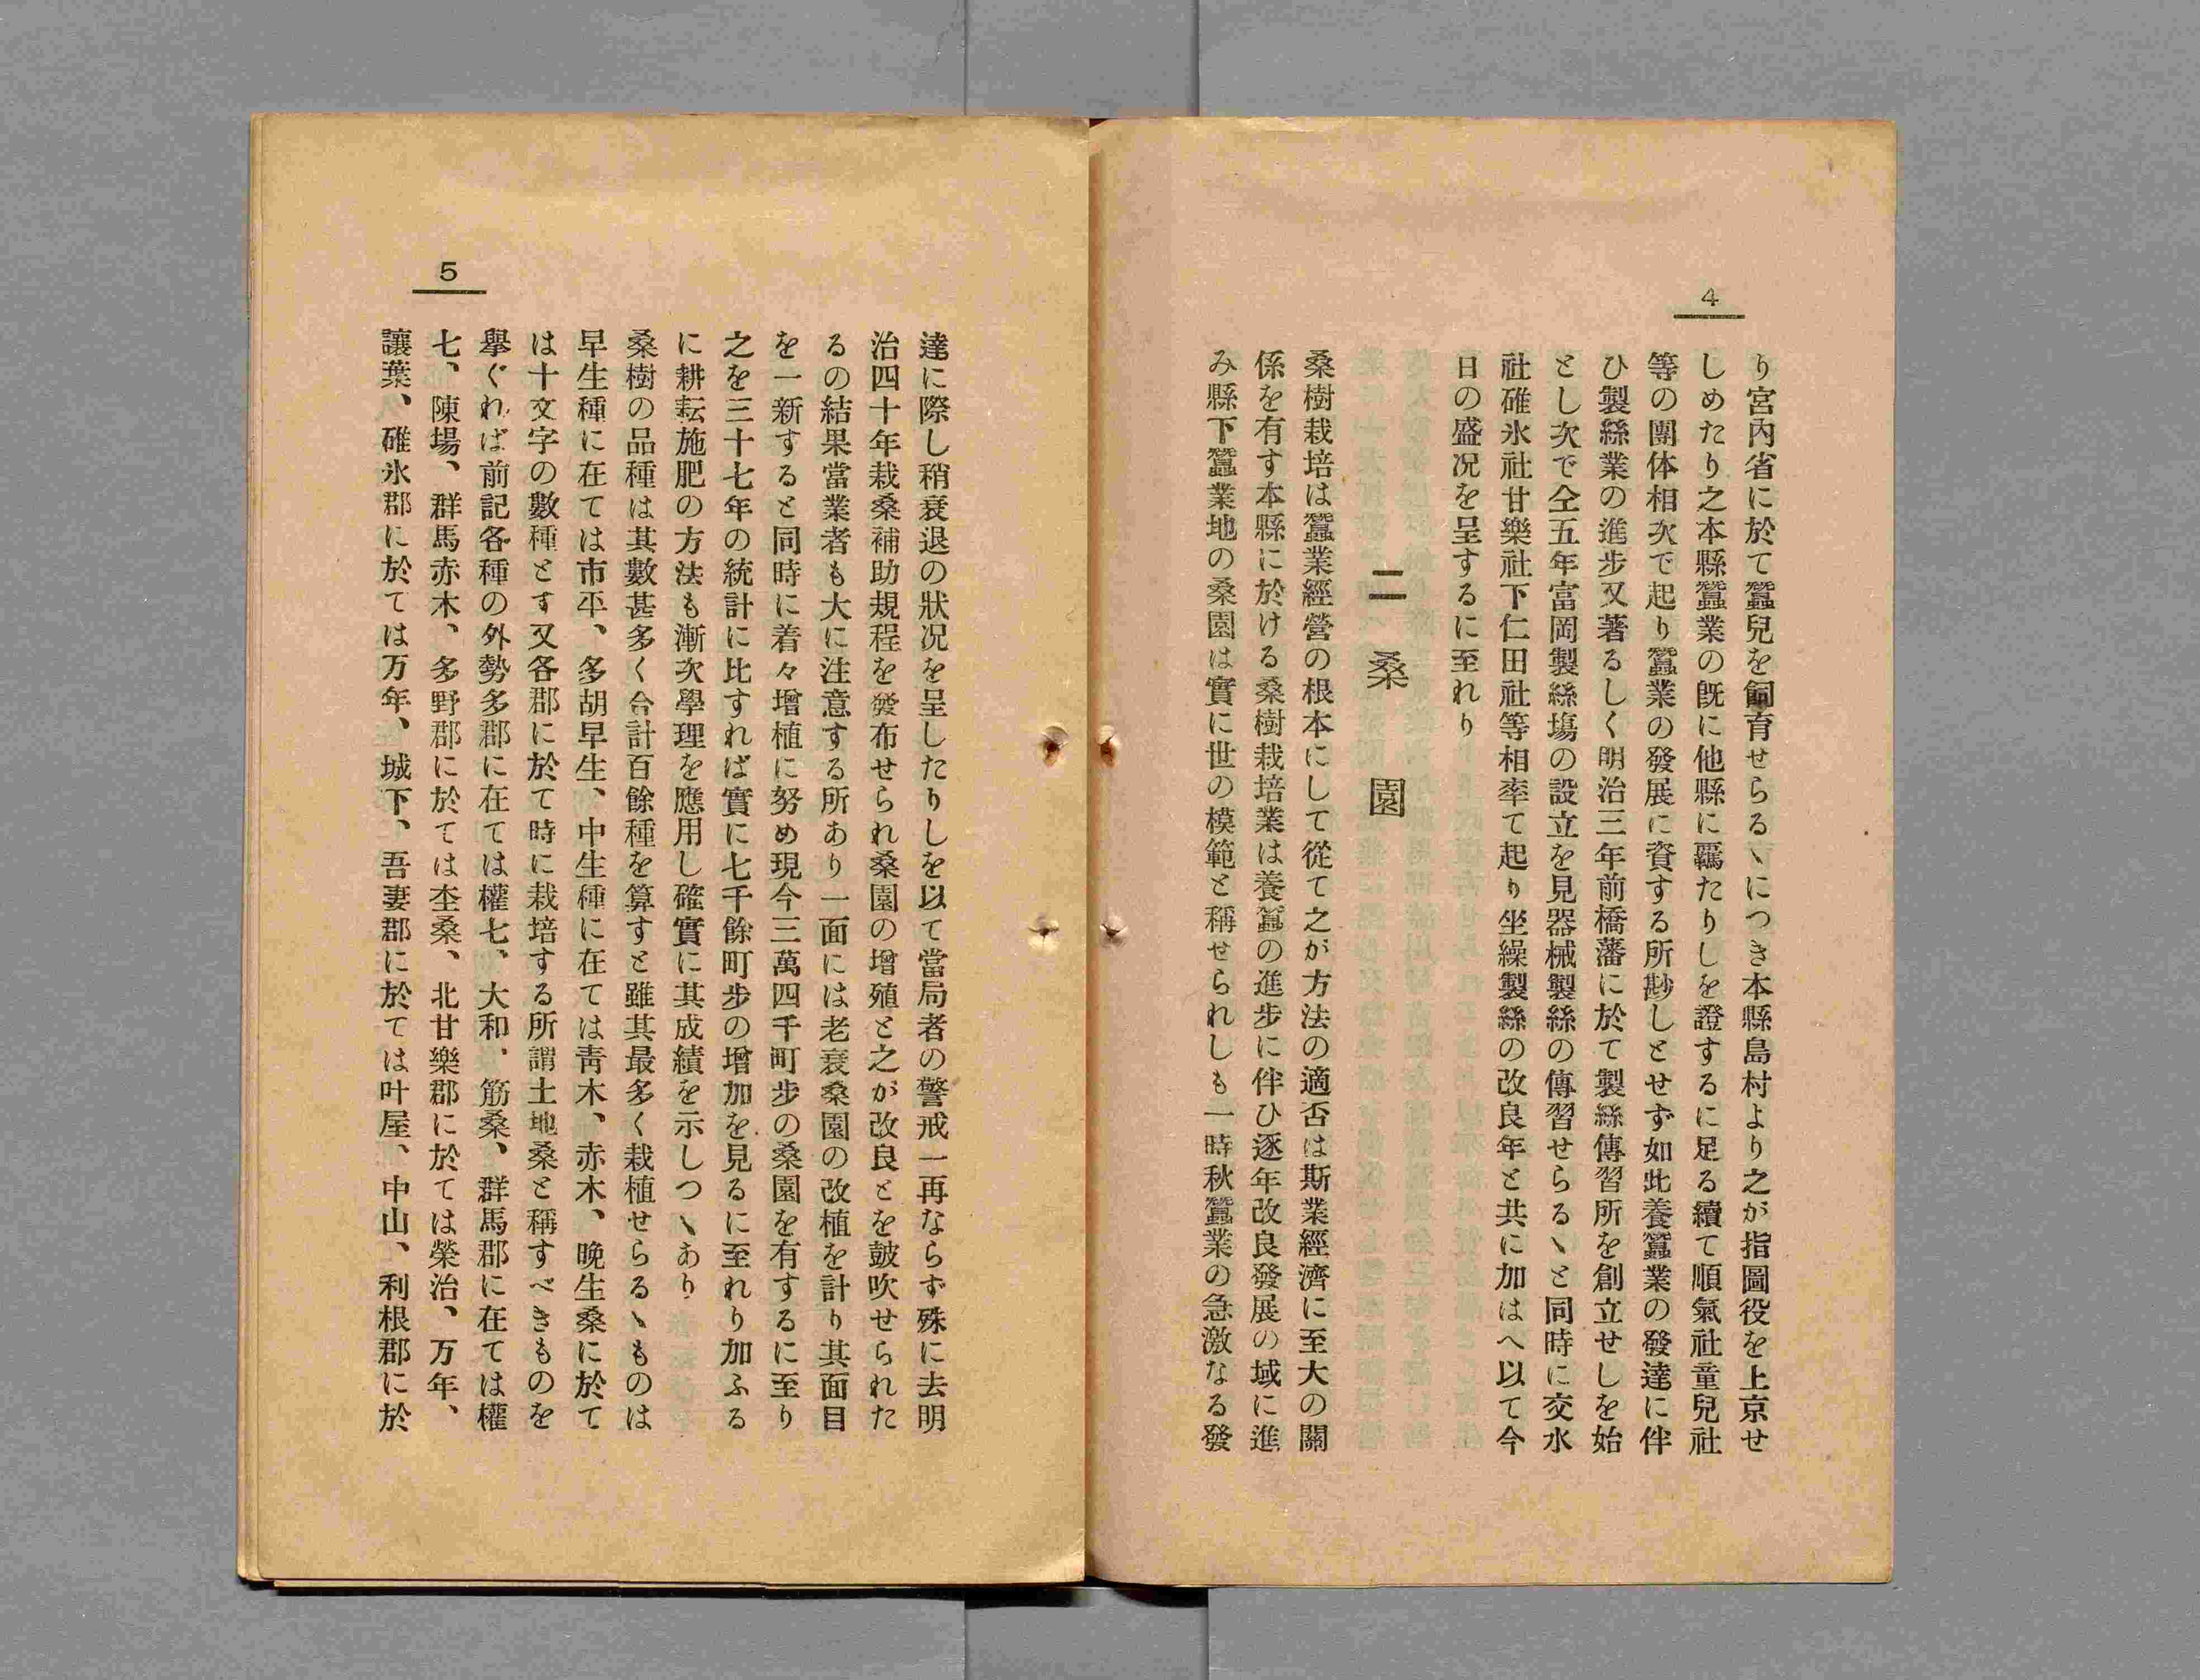 4
り宮內省に於て蠶兒を飼育せらるゝにつき本縣島村より之が指圖役を上京せ
しめたり之本縣蠶業の既に他縣に覊たりしを證するに足る續て順氣社童兒社
等の團体相次で起り蠶業の發展に資する所尠しとせず如此養蠶業の發達に伴
ひ製絲業の進步又著るしく明治三年前橋藩に於て製絲傳習所を創立せしを始
とし次で仝五年富岡製絲塲の設立を見器械製絲の傳習せらるゝと同時に交水
社碓氷社甘樂社下仁田社等相率て起り坐繰製絲の改良年と共に加はへ以て今
日の盛况を呈するに至れり
二 桑園
桑樹栽培は蠶業經營の根本にして從て之が方法の適否は斯業經濟に至大の關
係を有す本縣に於ける桑樹栽培業は養蠶の進步に伴ひ逐年改良發展の域に進
み縣下蠶業地の桑園は實に世の模範と稱せられしも一時秋蠶業の急激なる發
5
達に際し稍衰退の狀况を呈したりしを以て當局者の警戒一再ならず殊に去明
治四十年栽桑補助規程を發布せられ桑園の增殖と之が改良とを鼓吹せられた
るの結果當業者も大に注意する所あり一面には老衰桑園の改植を計り其面目
を一新すると同時に着々增植に努め現今三萬四千町步の桑園を有するに至り
之を三十七年の統計に比すれば實に七千餘町步の增加を見るに至れり加ふる
に耕耘施肥の方法も漸次學理を應用し確實に其成績を示しつゝあり
桑樹の品種は其數甚多く合計百餘種を算すと雖其最多く栽植せらるゝものは
早生種に在ては市平、多胡早生、中生種に在ては靑木、赤木、晩生桑に於て
は十文字の數種とす又各郡に於て時に栽培する所謂土地桑と稱すべきものを
擧ぐれば前記各種の外勢多郡に在ては權七、大和、筋桑、群馬郡に在ては權
七、陳場、群馬赤木、多野郡に於ては杢桑、北甘樂郡に於ては榮治、万年、
讓葉、碓氷郡に於ては万年、城下、吾妻郡に於ては叶屋、中山、利根郡に於